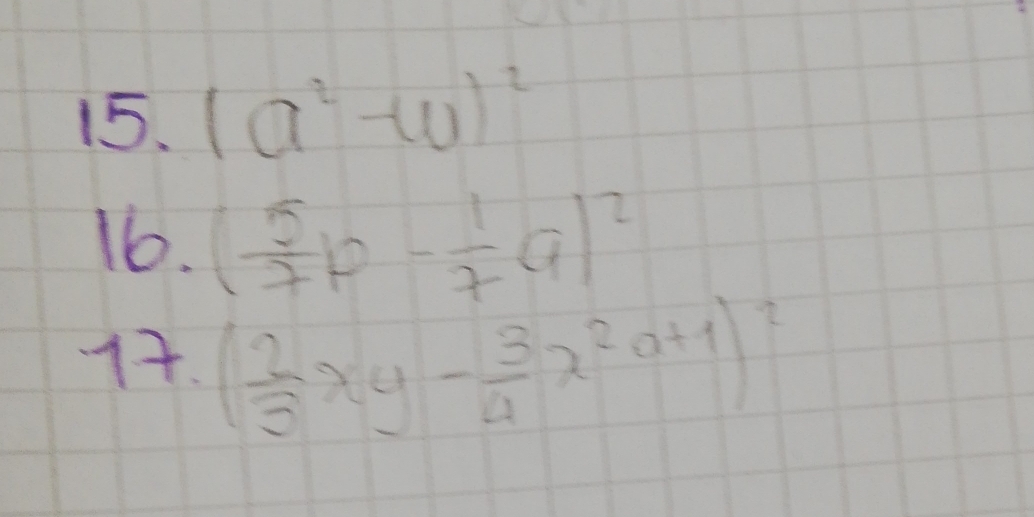 15. (a² - w)²
16. (5/7 p - 1/7 a)²
17. (2/3 xy - 3/4 x^(2a+1))²